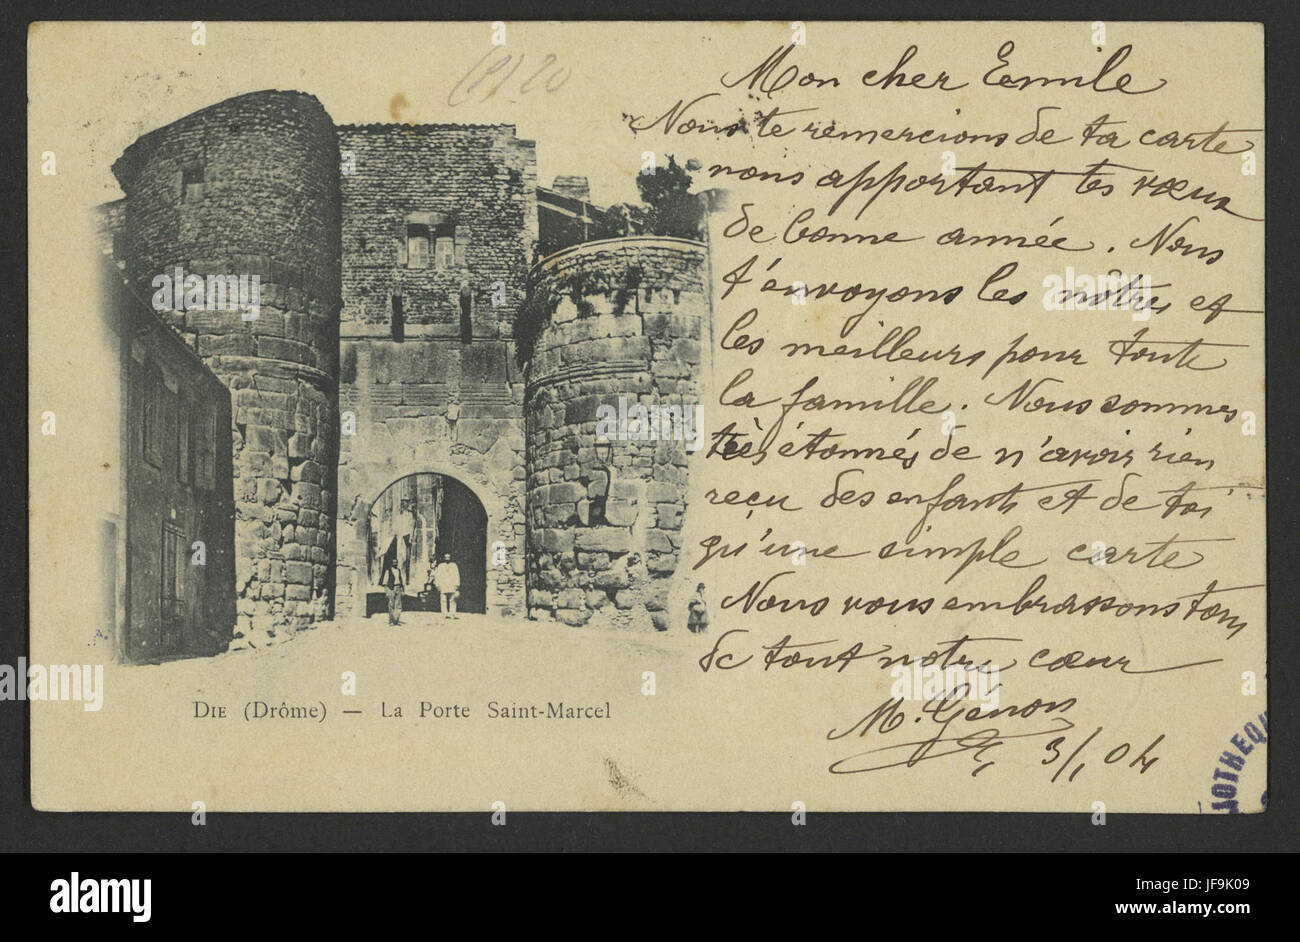 (P) 20
Mon cher Emile
Nous te remercions de ta carte
nous apportant tes vœux
de bonne année. Nous
t'envoyons les nôtres et
les meilleurs pour toute
la famille. Nous sommes
très étonnés de n'avoir rien
reçu des enfants et de toi
qu'une simple carte
Nous vous embrassons tous
de tout notre cœur
M. Génon
3/1 04
DIE (Drôme) — La Porte Saint-Marcel
alamy
alamy
Image ID: JF9K09
www.alamy.com